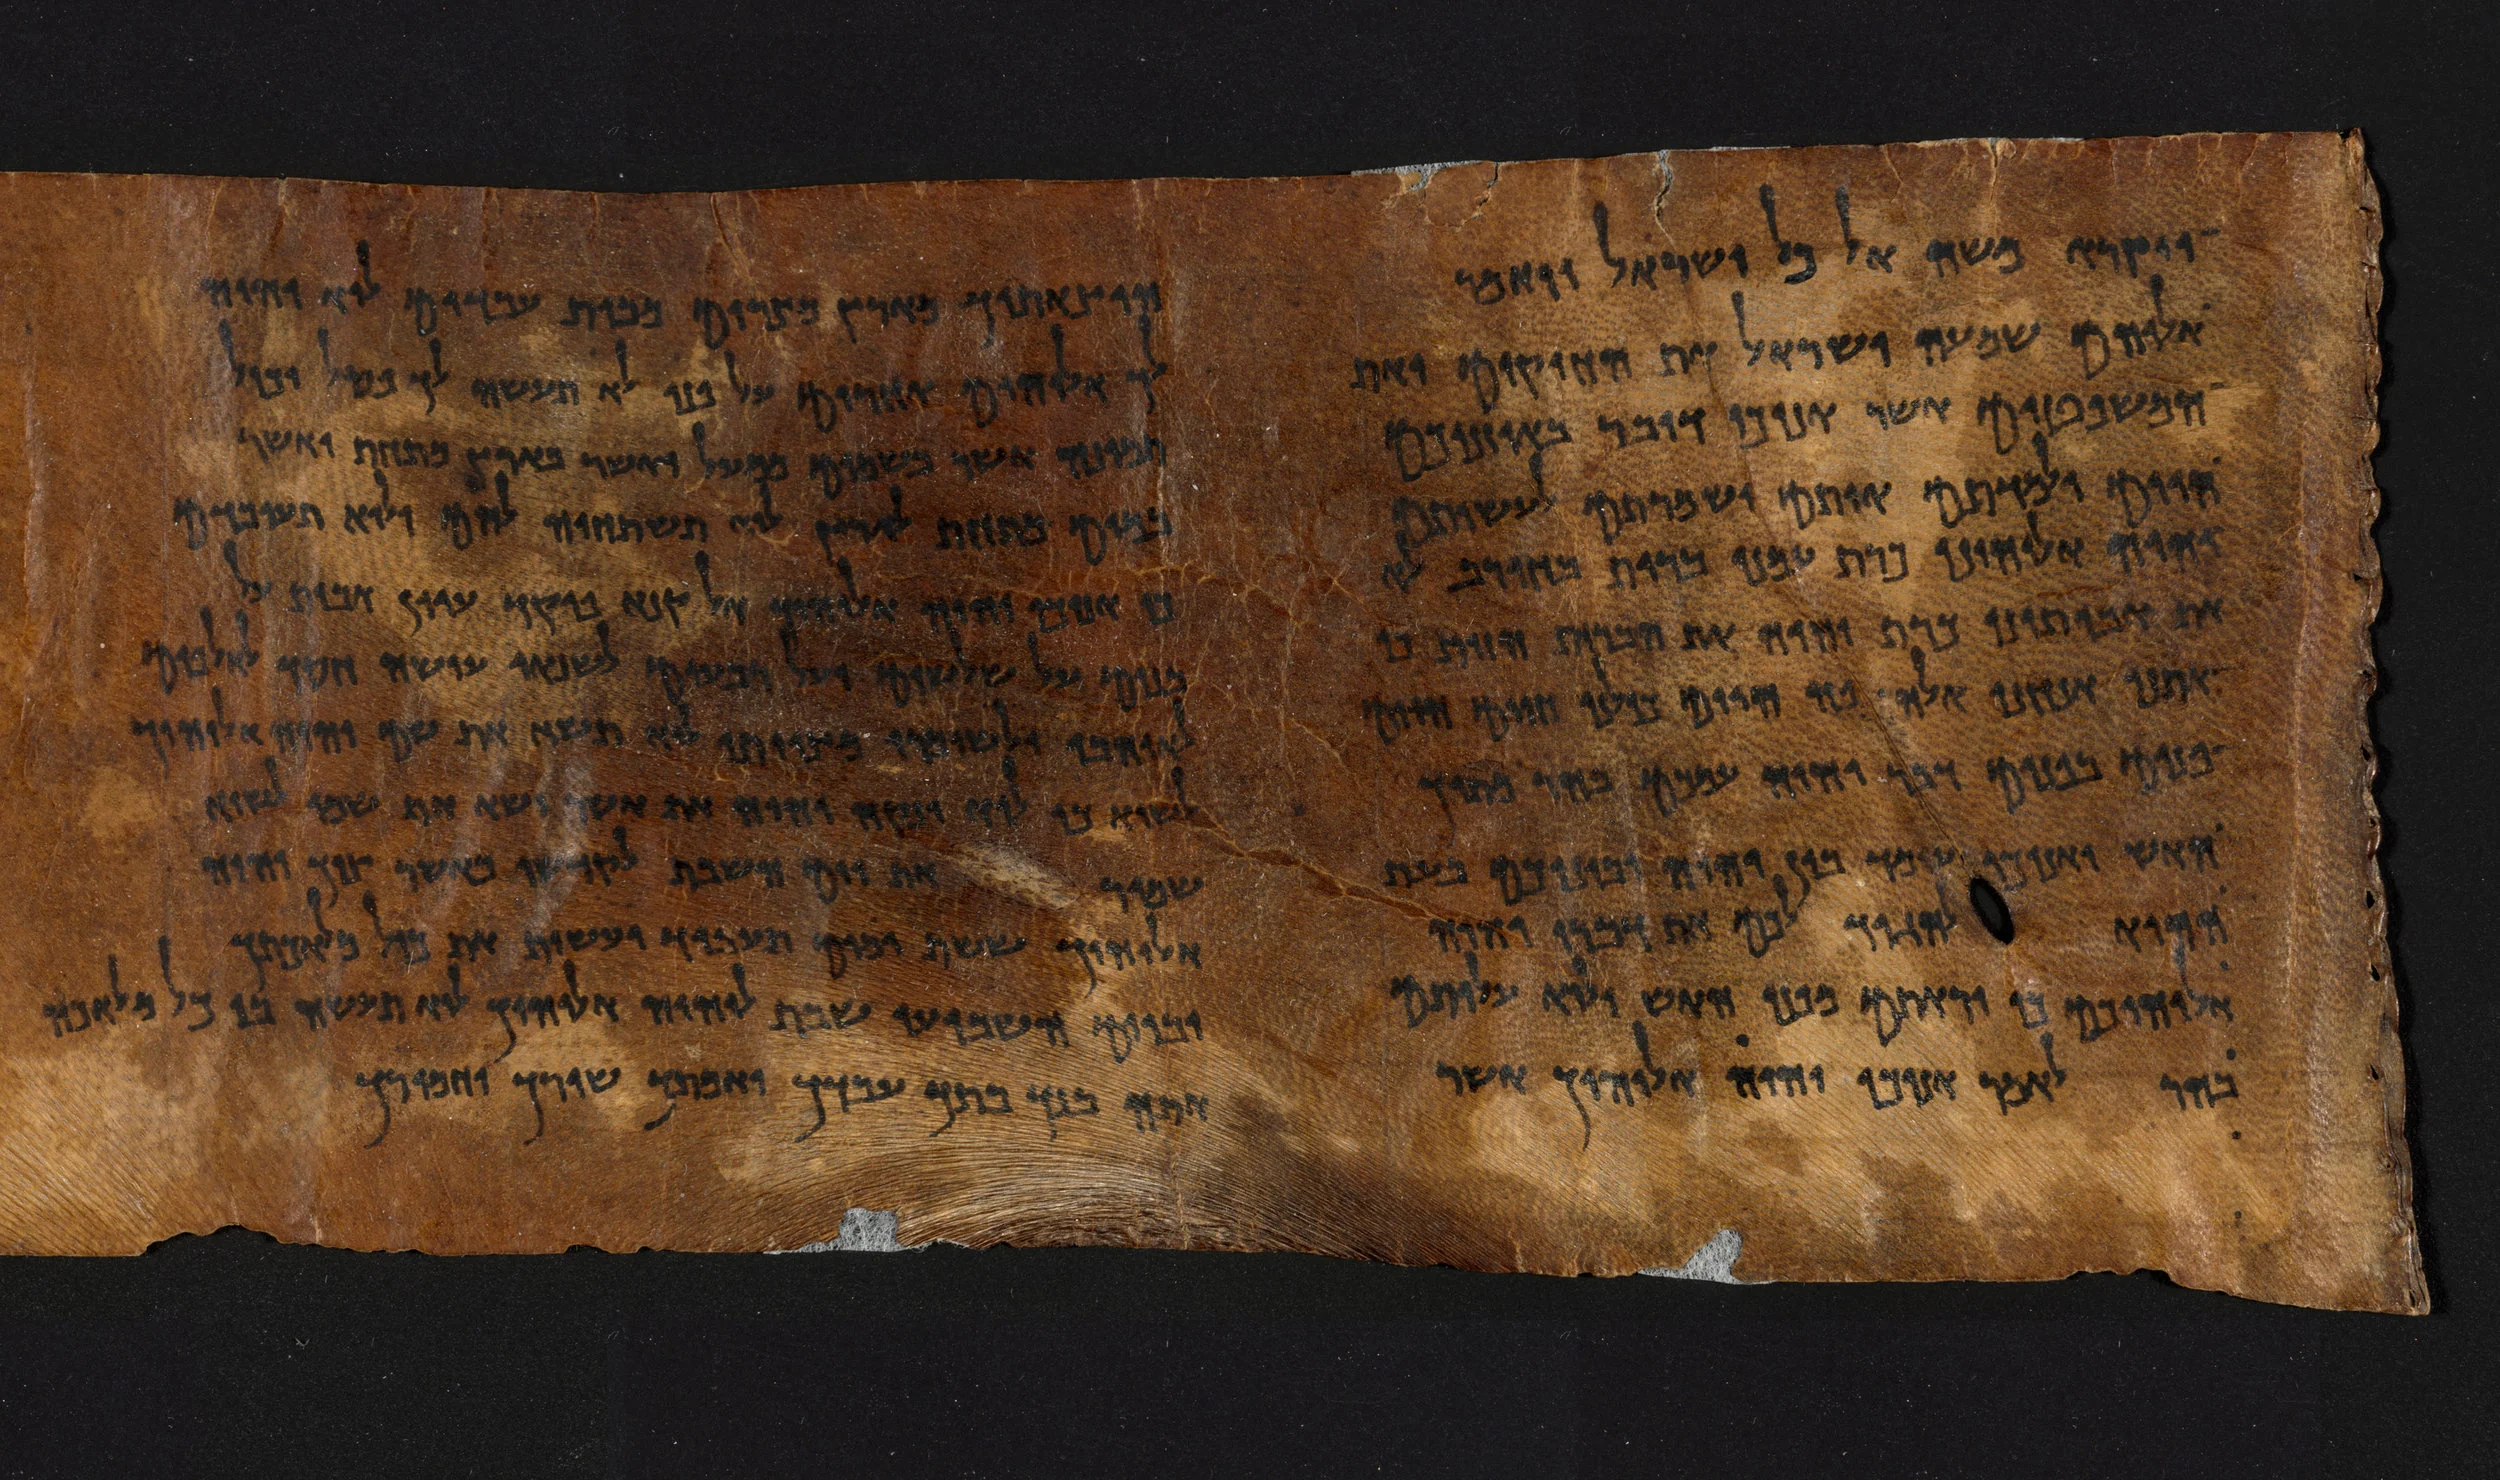 ויקרא משה אל כל ישראל ויאמר
אלוהם שמעה ישראל את החוקים ואת
המשפטים אשר אנוכי דובר באוזניכם
היום ולמדתם אותם ושמרתם לעשותם
יהוה אלוהינו כרת עמנו ברית בחורב לוא
את אבותינו כרת יהוה את הברית הזות כי
אתנו אנחנו אלה פה היום כולנו חיים היום
פנים בפנים דבר יהוה עמכם בהר מתוך
האש ואנוכי עומד בין יהוה ובינוכם בעת
ההיא להגיד לכם את דברי יהוה
אלוהיכם כי יראתם מפני האש ולוא עליתם
בהר לאמר אנוכי יהוה אלוהיך אשר
הוצאתיך מארץ מצרים מבית עבדים לוא יהיה
לך אלוהים אחרים על פני לא תעשה לך פסל וכול
תמונה אשר בשמים ממעל ואשר בארץ מתחת ואשר
במים מתחת לארץ לוא תשתחוה להם ולוא תעובדם
כי אנוכי יהוה אלוהיך אל קנא פוקד עוון אבות על
בנים על שלשים ועל רבעים לשנאי עושה חסד לאלפים
לאוהבי ולשומרי מצוותי לוא תשא את שם יהוה אלוהיך
לשוא כי לוא ינקה יהוה את אשר ישא את שמו לשוא
שמור את יום השבת לקדשו כאשר צוך יהוה
אלוהיך ששת ימים תעבוד ועשית את כול מלאכתך
וביום השביעי שבת ליהוה אלוהיך לוא תעשה בו כל מלאכה
אתה בנך בתך עבדך ואמתך שורך וחמורך